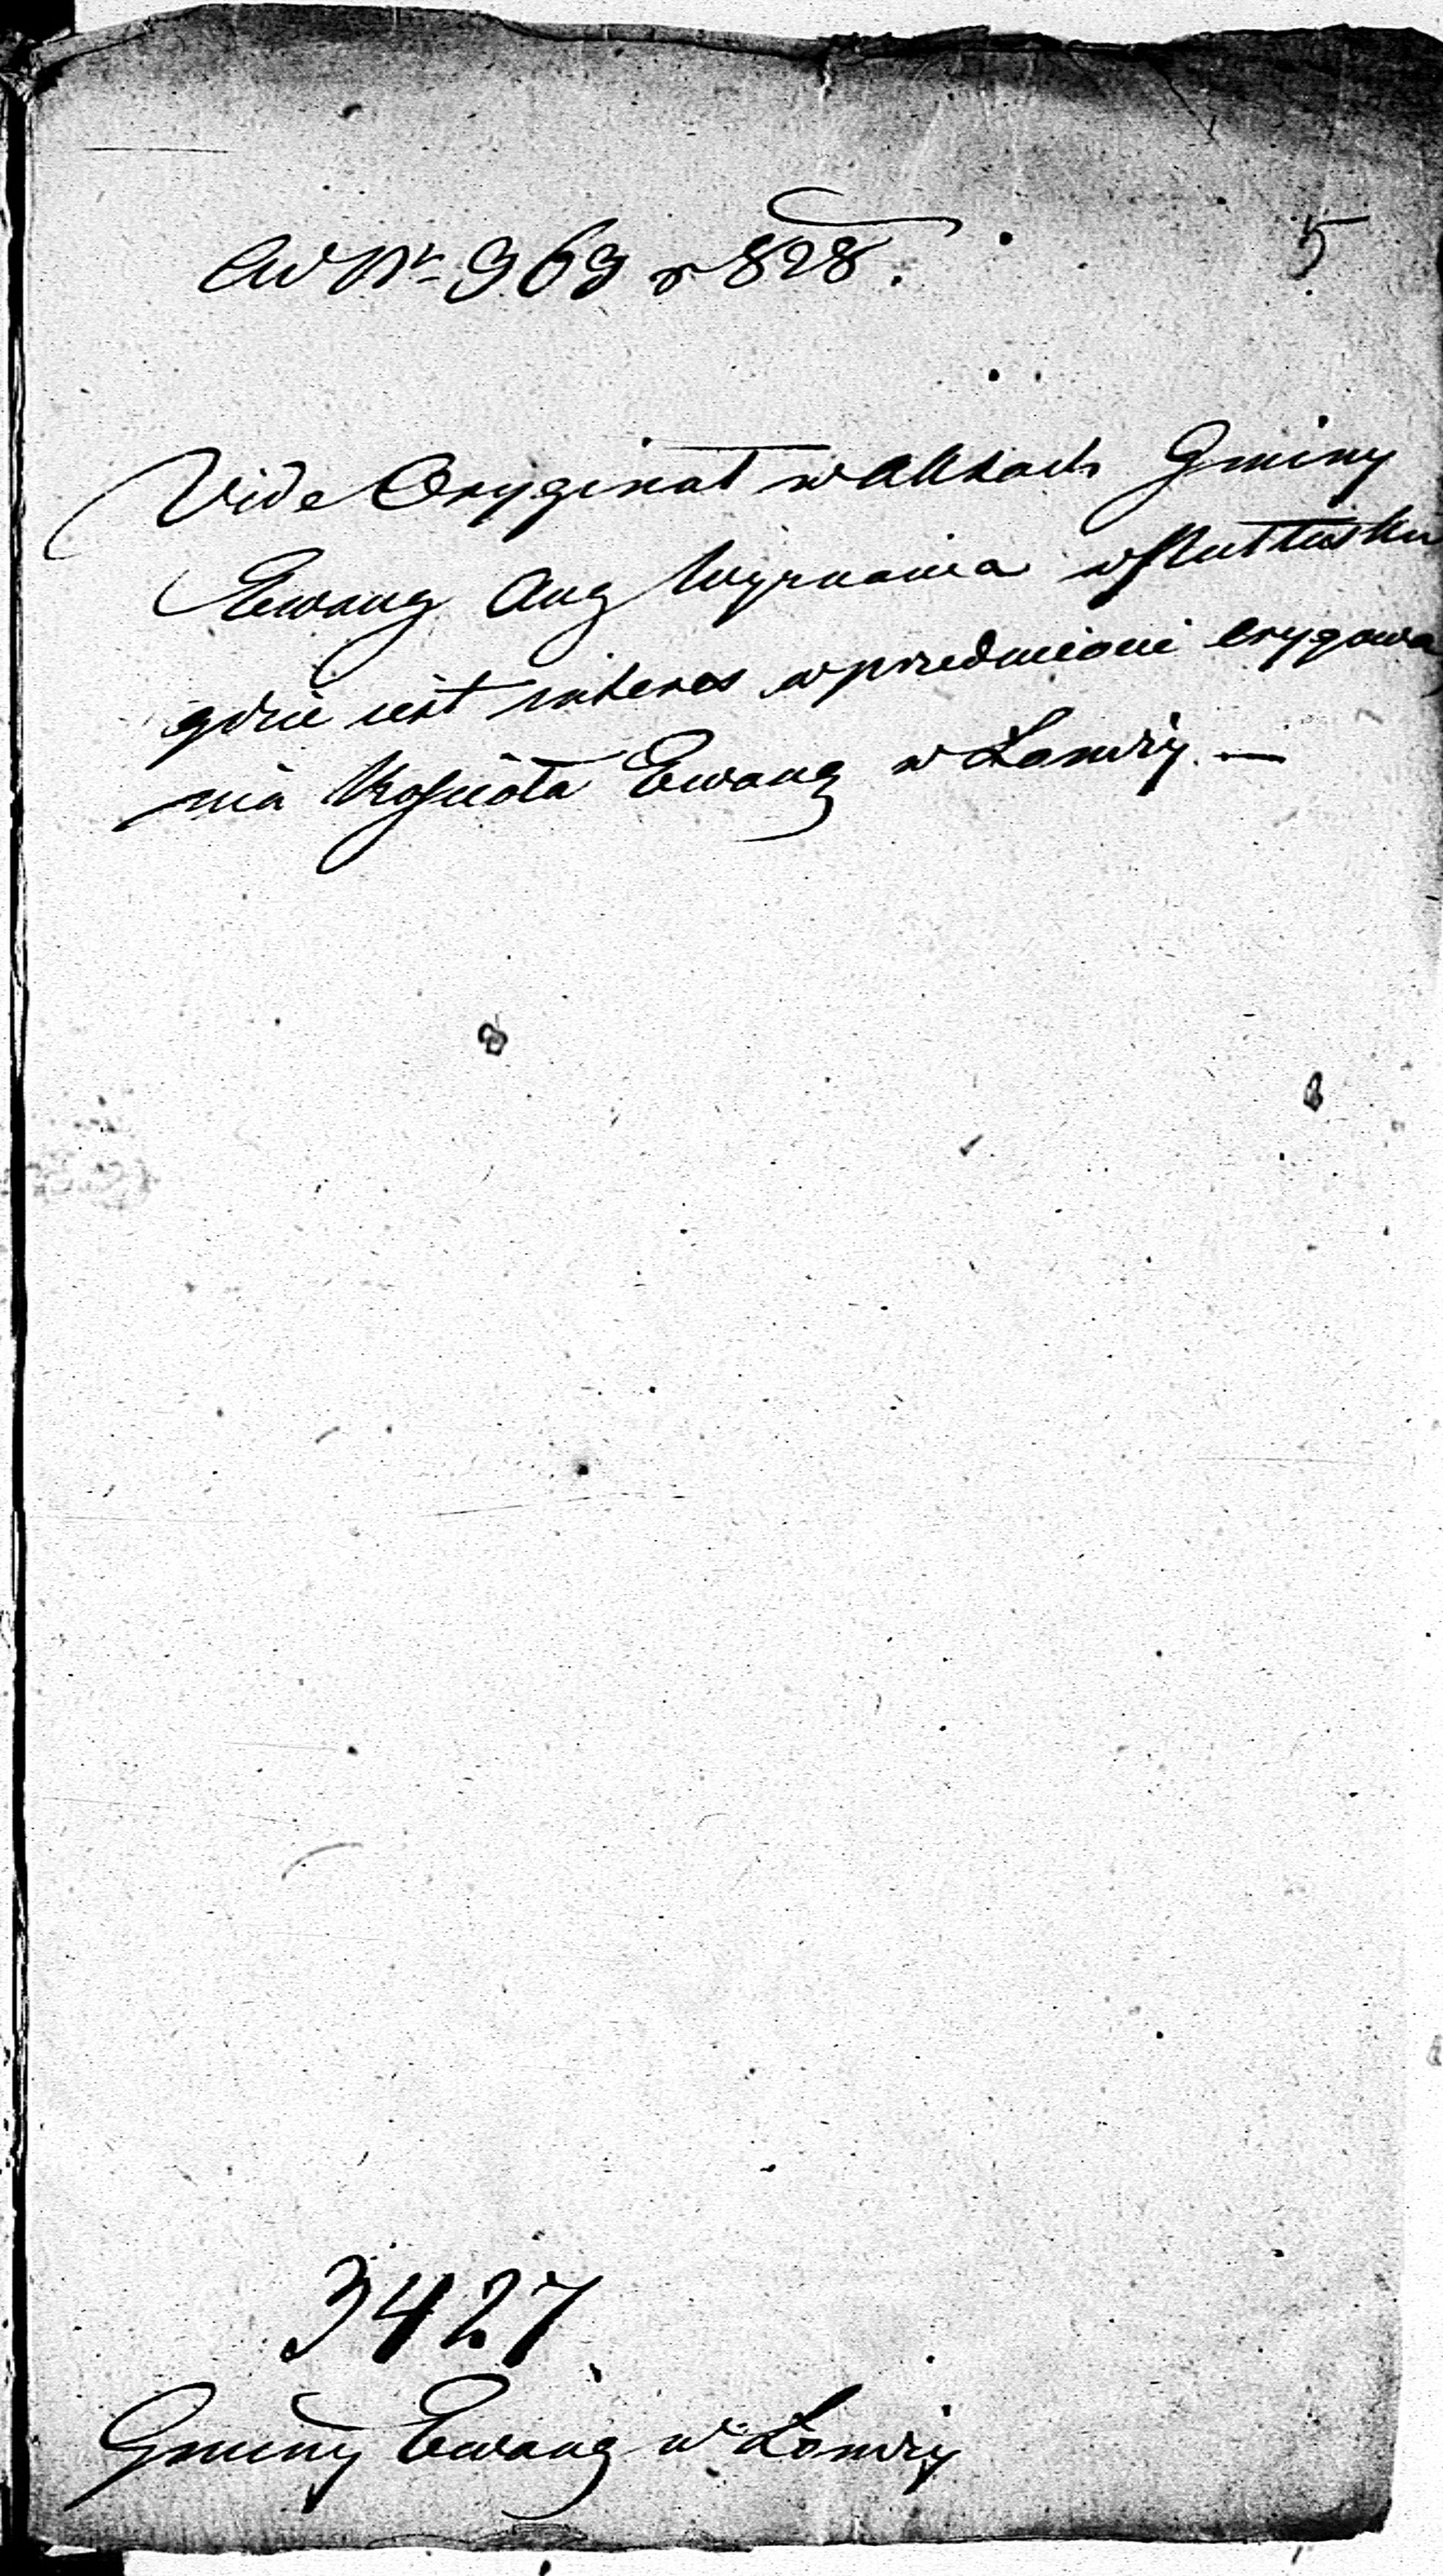 ad Nr 969 r 828.
5
Vide Oryginał w Aktach Gminy
Ewang Aug Wyznania w Pułtusku
gdzie iest interes w przedmiocie erygowa
nia Kościoła Ewang w Łomży. —
3427
Gminy Ewang w Łomży